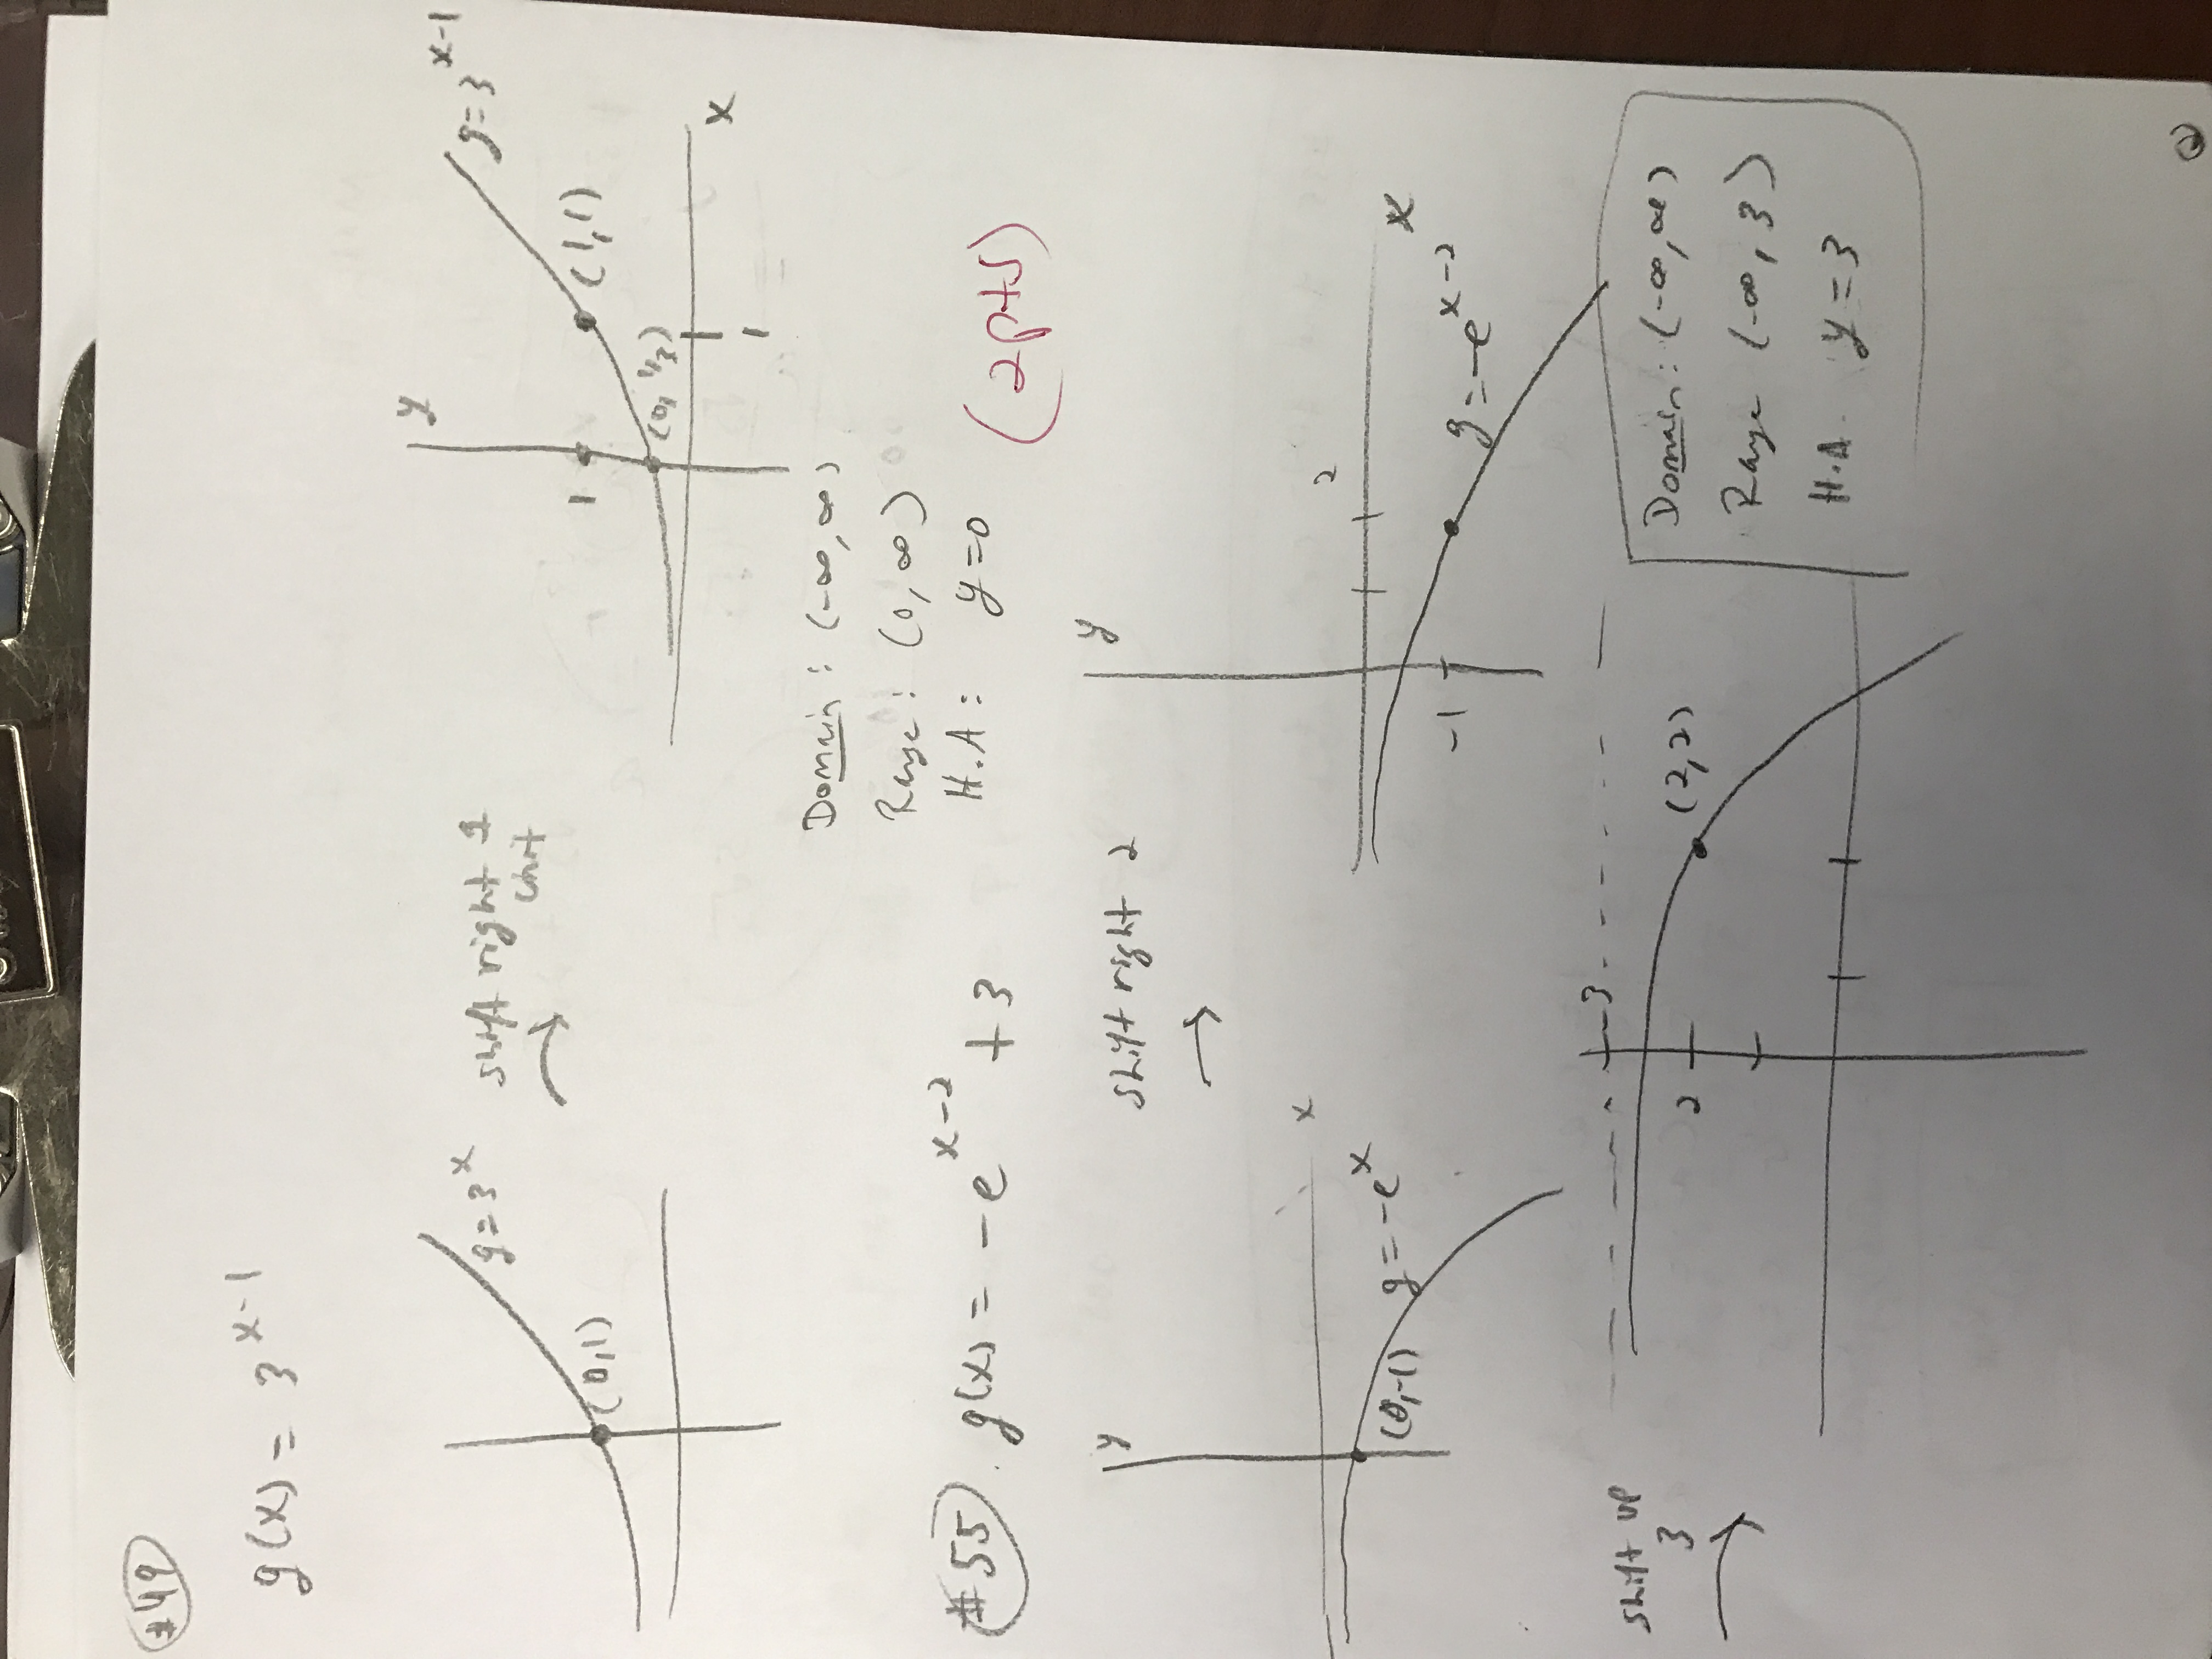 #49
g(x) = 3^{x-1}
y = 3^x
shift right 1
unit
(0,1)
y
y = 3^{x-1}
1
(1,1)
(0, 1/3)
x
1
Domain : (-∞,∞)
Range : (0, ∞)
H.A : y=0
(2pts)
#55. g(x) = -e^{x-2} + 3
y
shift right 2
y
x
(0,-1)
y = -e^x
2
x
-1
y = -e^{x-2}
shift up
3
3
2
(2,2)
Domain : (-∞,∞)
Range (-∞, 3)
H.A. y = 3